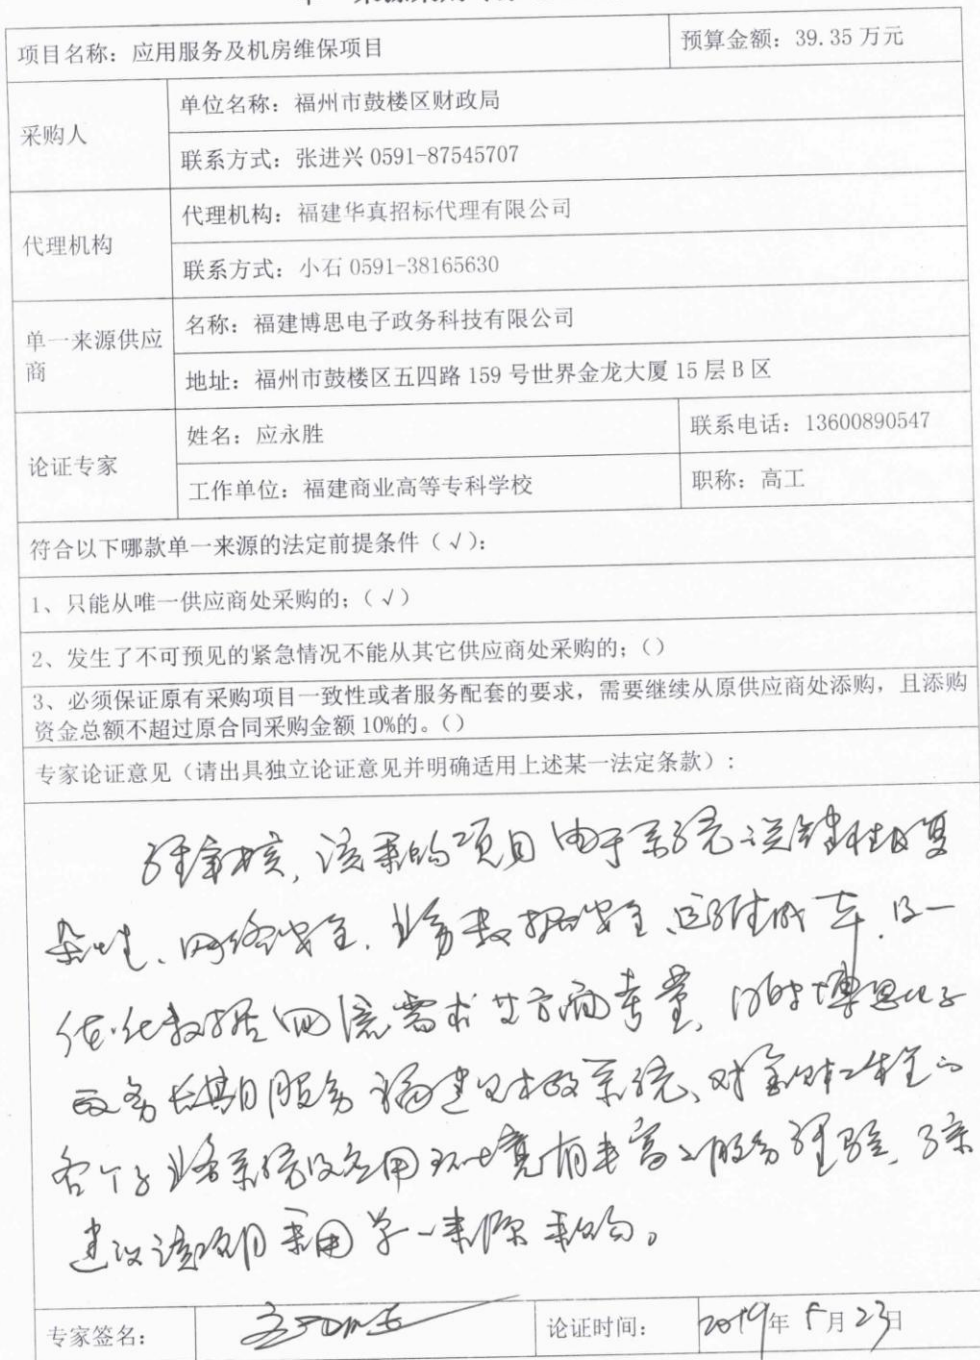 项目名称：应用服务及机房维保项目
预算金额：39.35 万元
采购人
单位名称：福州市鼓楼区财政局
联系方式：张进兴 0591-87545707
代理机构
代理机构：福建华真招标代理有限公司
联系方式：小石 0591-38165630
单一来源供应
商
名称：福建博思电子政务科技有限公司
地址：福州市鼓楼区五四路 159 号世界金龙大厦 15 层 B 区
论证专家
姓名：应永胜
联系电话：13600890547
工作单位：福建商业高等专科学校
职称：高工
符合以下哪款单一来源的法定前提条件（√）：
1、只能从唯一供应商处采购的；（√）
2、发生了不可预见的紧急情况不能从其它供应商处采购的；（）
3、必须保证原有采购项目一致性或者服务配套的要求，需要继续从原供应商处添购，且添购
资金总额不超过原合同采购金额 10%的。（）
专家论证意见（请出具独立论证意见并明确适用上述某一法定条款）：
经审核，该采购项目由于系统关键性及复
杂性、网络安全、业务数据安全、运维成本，及一
体化数据需求等方面考量，博思电子
政务长期服务福建财政系统、对金财工程的
各个子业务系统及应用环境有丰富的服务经验，
建议该项目采用单一来源采购。
专家签名：
论证时间：
2019年 5月23日